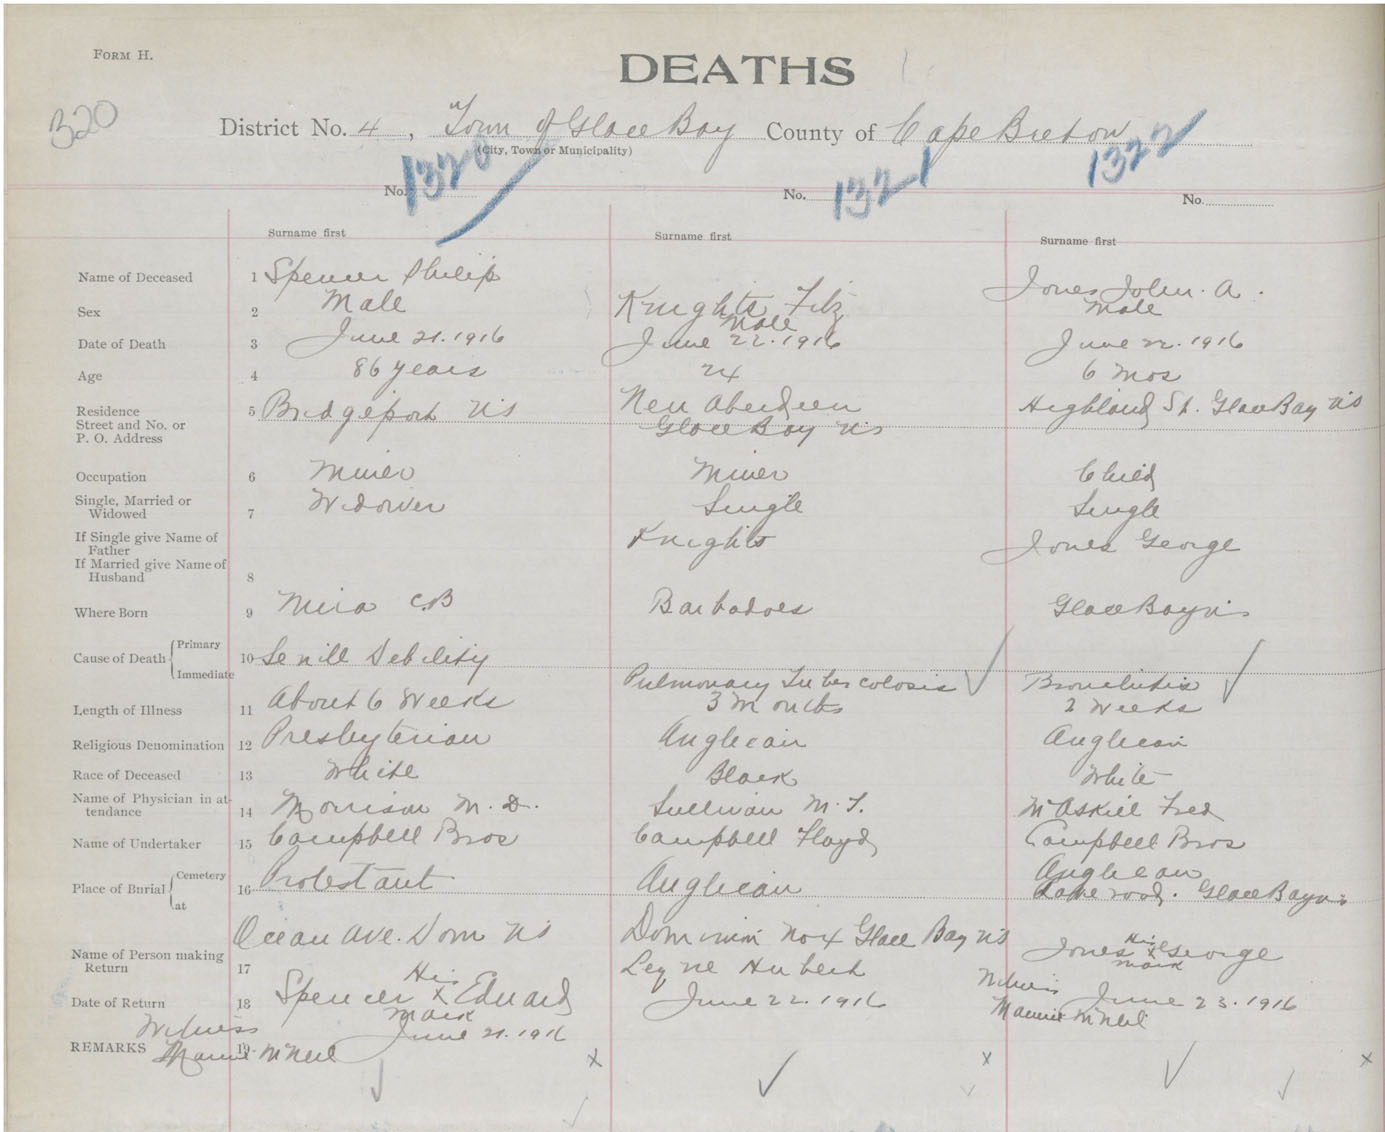 FORM H.
DEATHS
320
District No. 4, Town of Glace Bay County of Cape Breton
(City, Town or Municipality)
No. 1320 No. 1321 No. 1322
Surname first Surname first Surname first
Name of Deceased 1 Spencer Philip Knights Fitz Jones John. A.
Sex 2 Male Male Male
Date of Death 3 June 21. 1916 June 22. 1916 June 22. 1916
Age 4 86 years 24 6 mos
Residence Street and No. or P. O. Address 5 Bridgeport NS New Aberdeen Glace Bay NS Highland St. Glace Bay NS
Occupation 6 Miner Miner Child
Single, Married or Widowed 7 Widower Single Single
If Single give Name of Father Knights Jones George
If Married give Name of Husband 8
Where Born 9 Mira C.B Barbadoes Glace Bay NS
Cause of Death { Primary Immediate 10 Senill Debility Pulmonary Tubercolosis Bronchitis
Length of Illness 11 About 6 Weeks 3 Months 2 Weeks
Religious Denomination 12 Presbyterian Anglican Anglican
Race of Deceased 13 White Black White
Name of Physician in attendance 14 Morrison M. D. Sullivan M. T. McAskill Fred
Name of Undertaker 15 Campbell Bros Campbell Floyd Campbell Bros
Place of Burial { Cemetery at 16 Protestant Anglican Anglican
Ocean Ave. Dom NS Dominion No 4 Glace Bay NS Glace Bay NS
Name of Person making Return 17 Spencer His X mark Edward Hubert Jones His X mark George
Date of Return 18 June 21. 1916 June 22. 1916 June 23. 1916
Witness Witness
REMARKS 19 McNeil McNeil
x x x